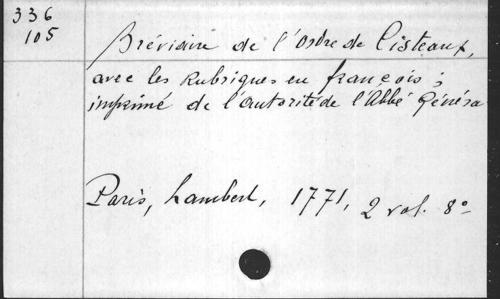 336
105
Bréviaire de l'ordre de Cisteaux,
avec les Rubriques en françois ;
imprimé de l'autorité de l'Abbé Généra
Paris, Lambert, 1771, 2 vol. 8°